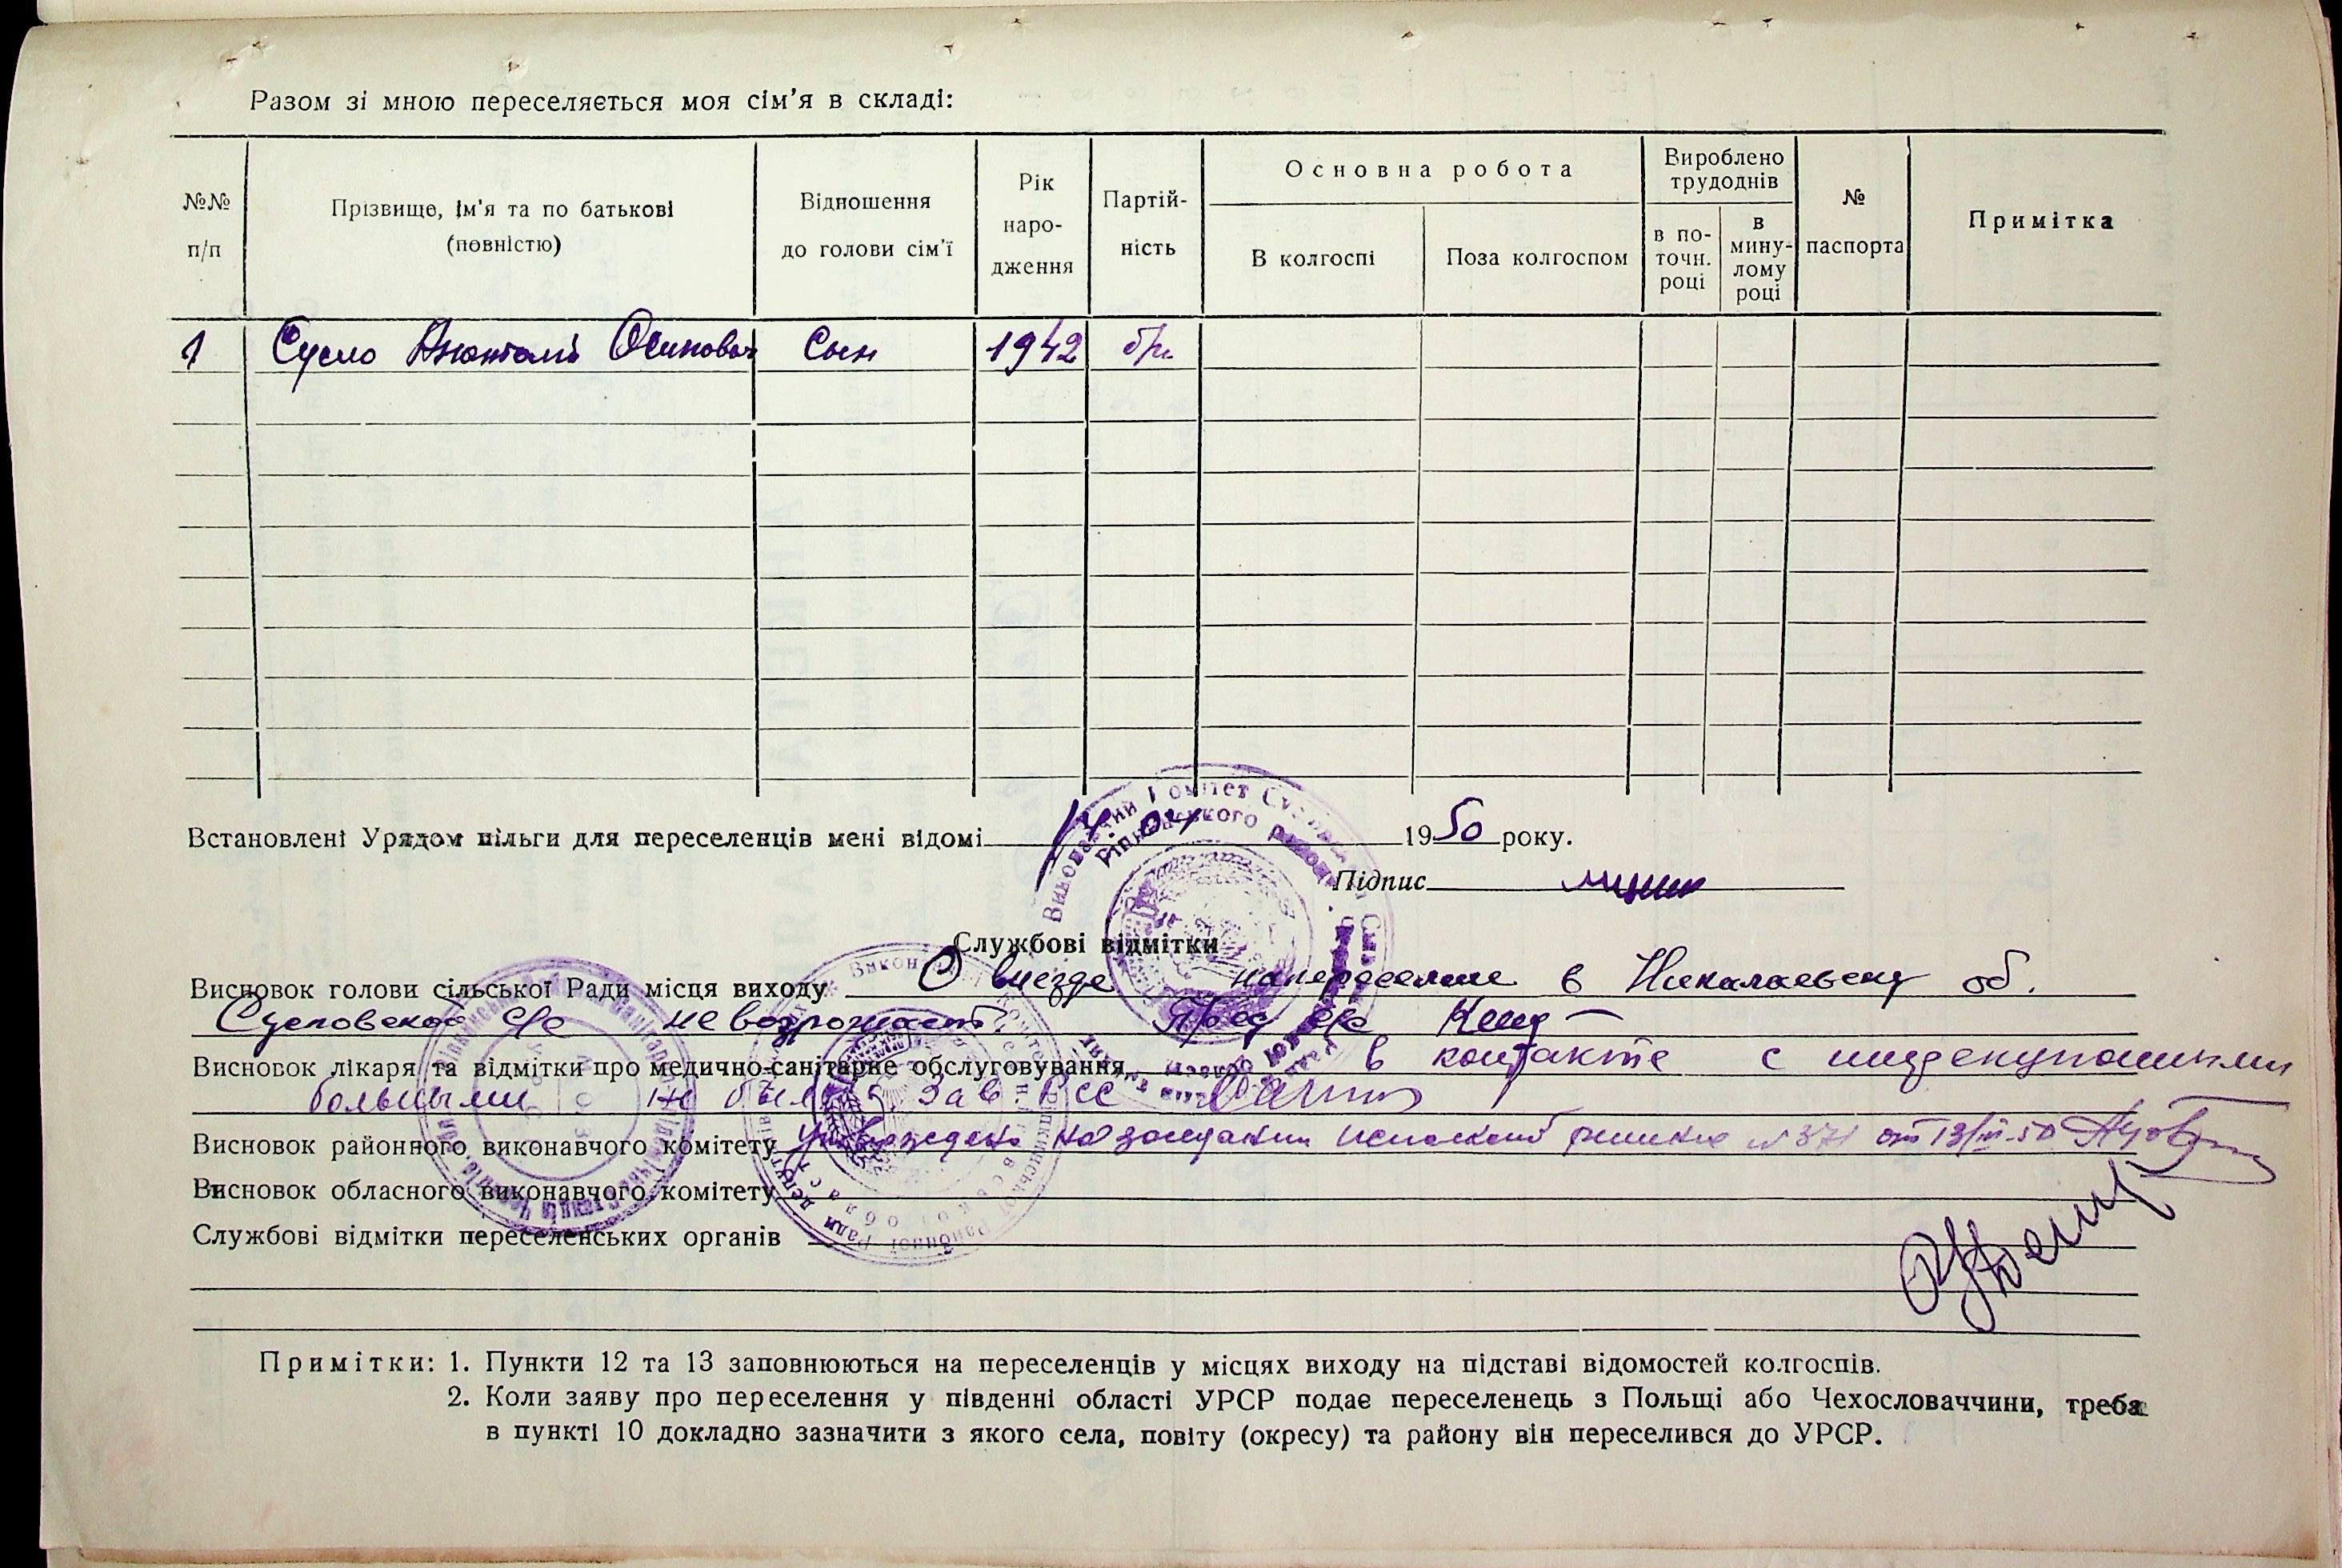 Разом зі мною переселяється моя сім'я в складі:
№№ п/п
Прізвище, ім'я та по батькові (повністю)
Відношення до голови сім'ї
Рік народження
Партійність
Основна робота
В колгоспі
Поза колгоспом
Вироблено трудоднів
в поточн. році
в минулому році
№ паспорта
Примітка
1 Сусло Анатолий Осипович Сын 1942 б/п
Встановлені Урядом пільги для переселенців мені відомі 1950 року.
Підпис
Службові відмітки
Висновок голови сільської Ради місця виходу О виезде на переселение в Николаевску об.
Сусловской с/с не возрожает. Пред с/с
Висновок лікаря та відмітки про медично-санітарне обслуговування в контакте с инфекционными
больными не был. Зав
Висновок районного виконавчого комітету Утвержден на заседании исполкома решение № 371 от 13/ІІІ-50
Висновок обласного виконавчого комітету
Службові відмітки переселенських органів
Примітки: 1. Пункти 12 та 13 заповнюються на переселенців у місцях виходу на підставі відомостей колгоспів.
2. Коли заяву про переселення у південні області УРСР подає переселенець з Польщі або Чехословаччини, треба
в пункті 10 докладно зазначити з якого села, повіту (окресу) та району він переселився до УРСР.